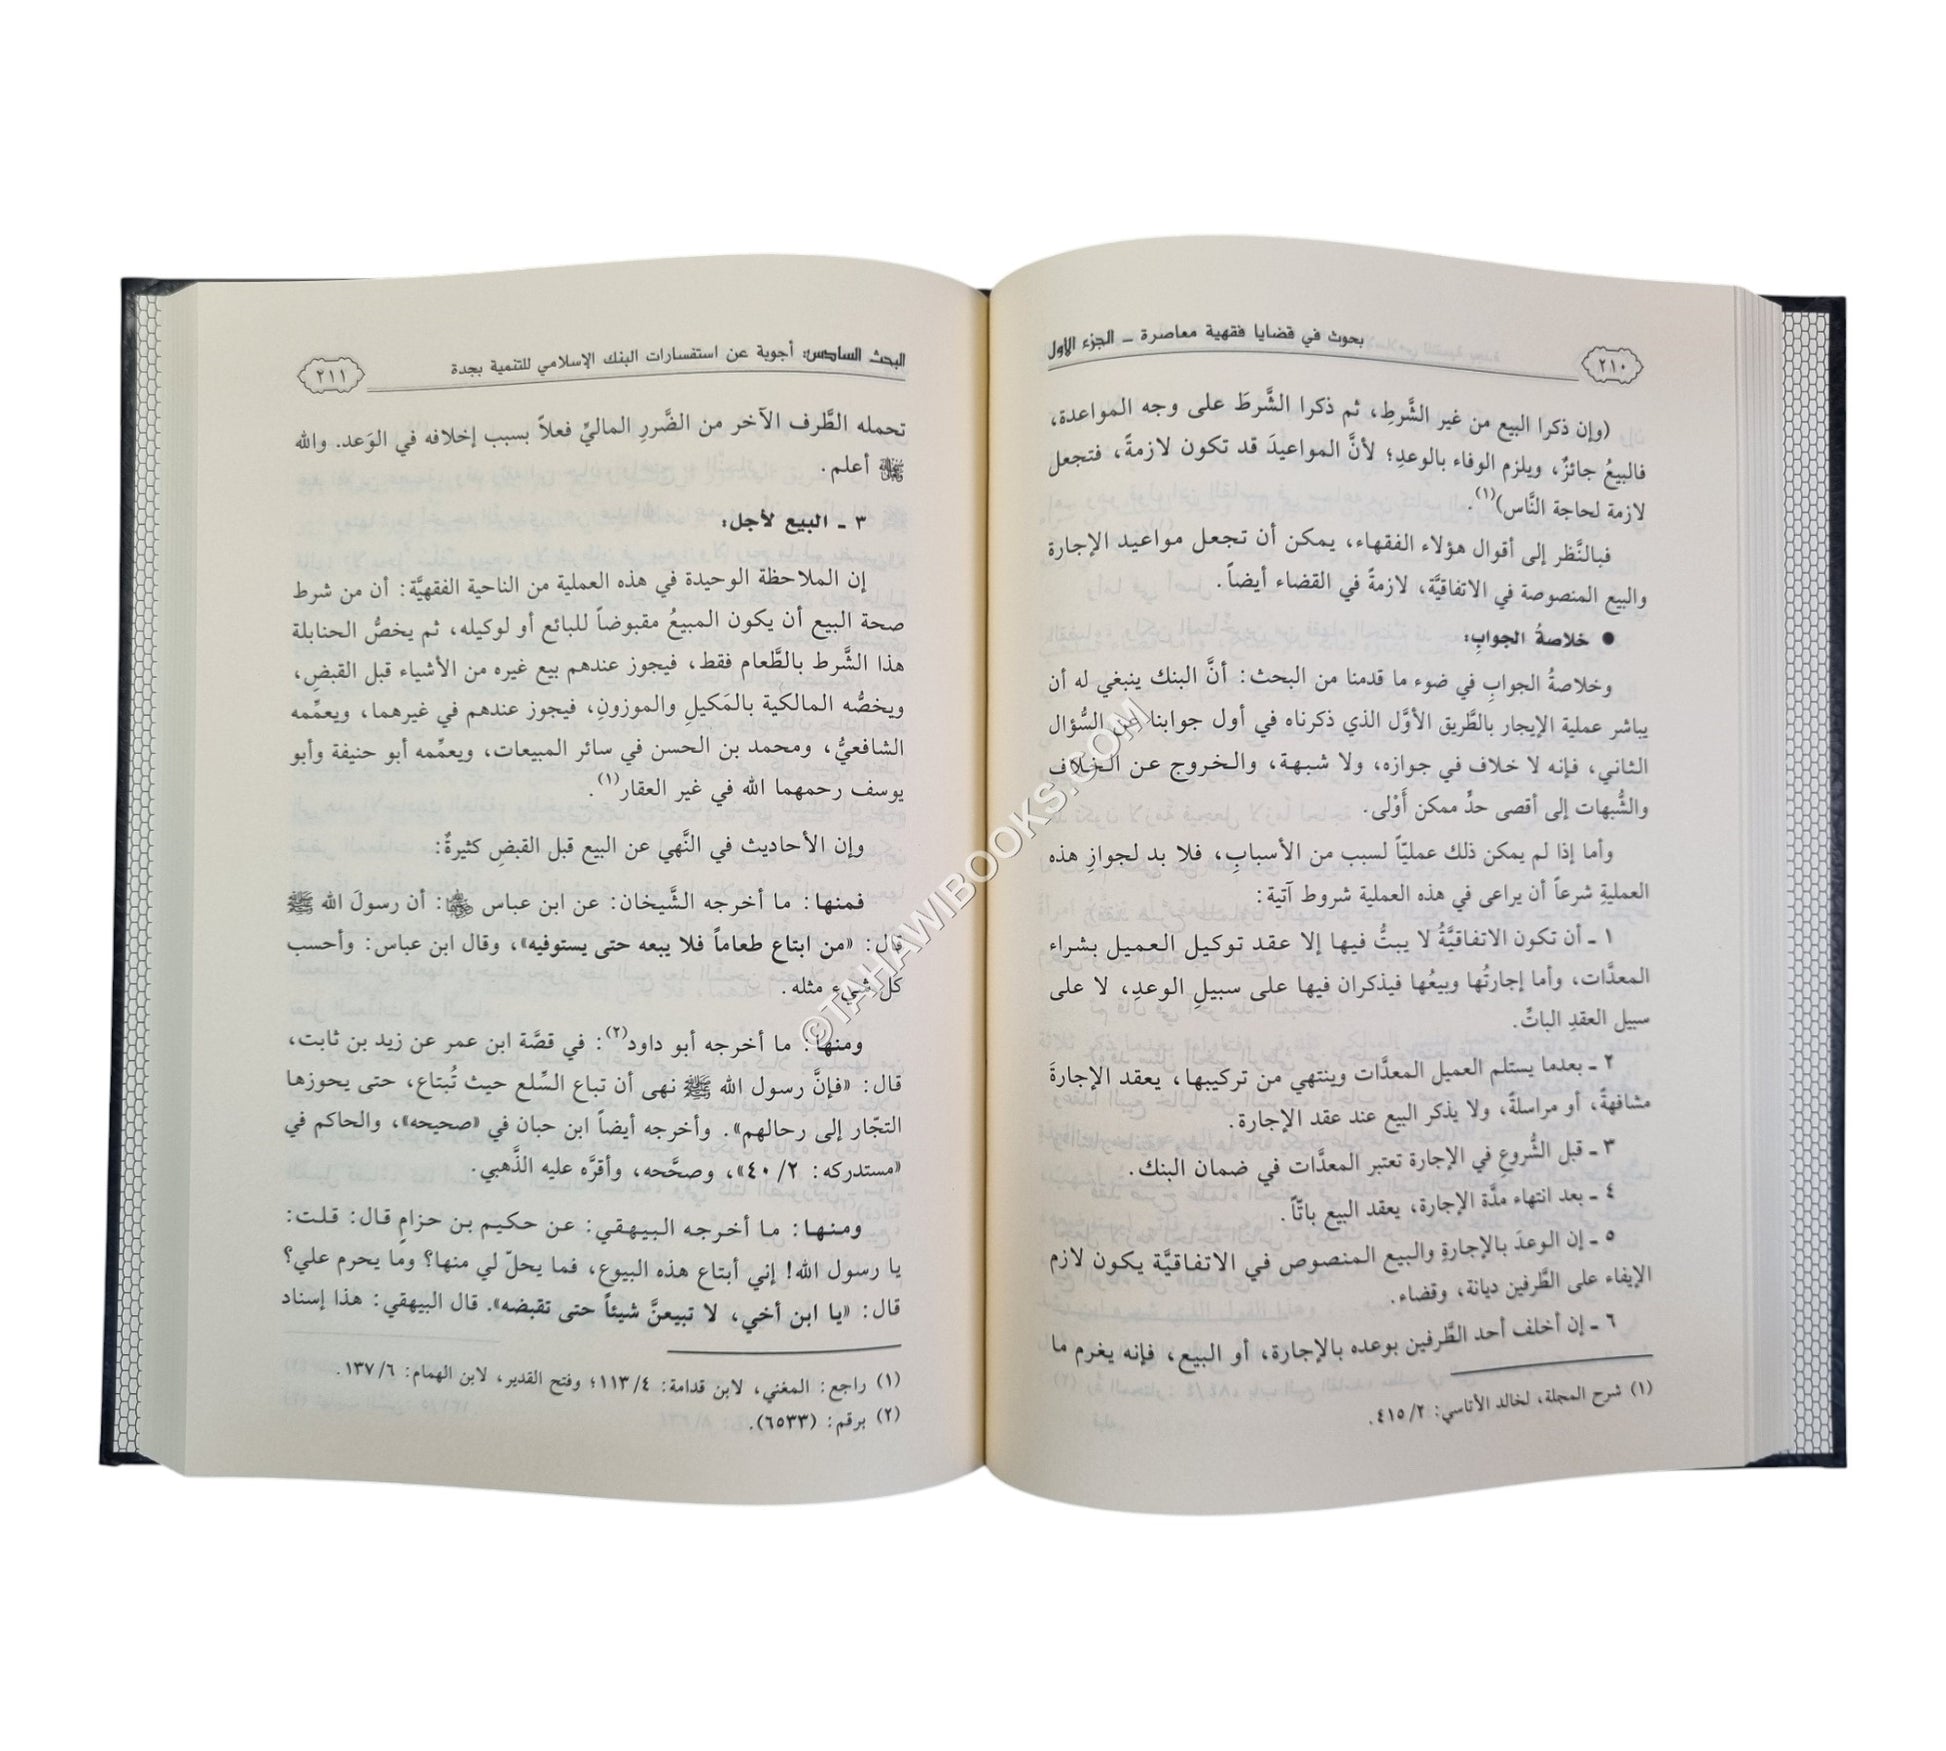 ٢١٠
بحوث في قضايا فقهية معاصرة ـ الجزء الأول
(وإن ذكرا البيع من غير الشَّرطِ، ثم ذكرا الشَّرطَ على وجه المواعدة،
فالبيعُ جائزٌ، ويلزم الوفاء بالوعدِ؛ لأنَّ المواعيدَ قد تكون لازمةً، فتجعل
لازمة لحاجة النَّاس)(١).
فبالنَّظر إلى أقوال هؤلاء الفقهاء، يمكن أن تجعل مواعيد الإجارة
والبيع المنصوصة في الاتفاقيَّة، لازمةً في القضاء أيضاً.
● خلاصةُ الجوابِ:
وخلاصةُ الجوابِ في ضوء ما قدمنا من البحث: أنَّ البنك ينبغي له أن
يباشر عملية الإيجار بالطَّريق الأوَّل الذي ذكرناه في أول جوابنا عن السُّؤال
الثاني، فإنه لا خلاف في جوازه، ولا شبهة، والخروج عن الخلاف
والشُّبهات إلى أقصى حدٍّ ممكن أَوْلى.
وأما إذا لم يمكن ذلك عمليّاً لسبب من الأسبابِ، فلا بد لجوازِ هذه
العمليةِ شرعاً أن يراعى في هذه العملية شروط آتية:
١ ـ أن تكون الاتفاقيَّةُ لا يبتُّ فيها إلا عقد توكيل العميل بشراء
المعدَّات، وأما إجارتُها وبيعُها فيذكران فيها على سبيلِ الوعدِ، لا على
سبيل العقدِ الباتِّ.
٢ ـ بعدما يستلم العميل المعدَّات وينتهي من تركيبها، يعقد الإجارةَ
مشافهةً، أو مراسلةً، ولا يذكر البيع عند عقد الإجارة.
٣ ـ قبل الشُّروعِ في الإجارة تعتبر المعدَّات في ضمان البنك.
٤ ـ بعد انتهاء مدَّة الإجارة، يعقد البيع باتّاً.
٥ ـ إن الوعدَ بالإجارةِ والبيع المنصوص في الاتفاقيَّة يكون لازم
الإيفاء على الطَّرفين ديانة، وقضاء.
٦ ـ إن أخلف أحد الطَّرفين بوعده بالإجارة، أو البيع، فإنه يغرم ما
(١) شرح المجلة، لخالد الأتاسي: ٤١٥/٢.
البحث السادس: أجوبة عن استفسارات البنك الإسلامي للتنمية بجدة
٢١١
تحمله الطَّرف الآخر من الضَّررِ الماليِّ فعلاً بسبب إخلافه في الوَعد. والله
أعلم.
٣ ـ البيع لأجل:
إن الملاحظة الوحيدة في هذه العملية من الناحية الفقهيَّة: أن من شرط
صحة البيع أن يكون المبيعُ مقبوضاً للبائع أو لوكيله، ثم يخصُّ الحنابلة
هذا الشَّرط بالطَّعام فقط، فيجوز عندهم بيع غيره من الأشياء قبل القبضِ،
ويخصُّه المالكية بالمَكيلِ والموزونِ، فيجوز عندهم في غيرهما، ويعمِّمه
الشافعيُّ، ومحمد بن الحسن في سائر المبيعات، ويعمِّمه أبو حنيفة وأبو
يوسف رحمهما الله في غير العقار(١).
وإن الأحاديث في النَّهي عن البيع قبل القبضِ كثيرةٌ:
فمنها: ما أخرجه الشَّيخان: عن ابن عباس ﵄: أن رسولَ الله ﷺ
قال: «من ابتاع طعاماً فلا يبعه حتى يستوفيه»، وقال ابن عباس: وأحسب
كل شيء مثله.
ومنها: ما أخرجه أبو داود(٢): في قصَّة ابن عمر عن زيد بن ثابت،
قال: «فإنَّ رسول الله ﷺ نهى أن تباع السِّلع حيث تُبتاع، حتى يحوزها
التجّار إلى رحالهم». وأخرجه أيضاً ابن حبان في «صحيحه»، والحاكم في
«مستدركه: ٤٠/٢»، وصحَّحه، وأقرَّه عليه الذَّهبي.
ومنها: ما أخرجه البيهقي: عن حكيم بن حزامٍ قال: قلت:
يا رسول الله! إني أبتاع هذه البيوع، فما يحلّ لي منها؟ وما يحرم علي؟
قال: «يا ابن أخي، لا تبيعنَّ شيئاً حتى تقبضه». قال البيهقي: هذا إسناد
(١) راجع: المغني، لابن قدامة: ١١٣/٤؛ وفتح القدير، لابن الهمام: ١٣٧/٦.
(٢) برقم: (٦٥٣٣).
©TAHAWIBOOKS.COM